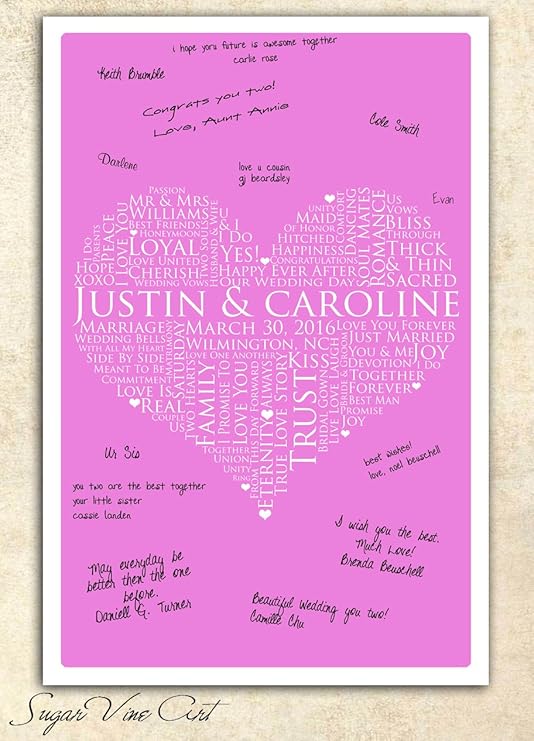 i hope yoru future is awesome together
carlie rose
Keith Brumble
Congrats you two!
Love, Aunt Annie
Cole Smith
Darlene
love u cousin
gj beardsley
Evan
Passion
Mr & Mrs
Williams
Best Friends
Honeymoon
Loyal
Love United
Cherish
Wedding Vows
I Do
Parents
Peace
I Love You
Hope
XOXO
Two Souls
Husband & Wife
U & I
I Do
Yes!
Happy Ever After
Our Wedding Day
Unity
Maid
Of Honor
Hitched
Happiness
Congratulations
Comfort
Dancing
Soul Mates
Romance
Us
Vows
Bliss
Through
Thick
& Thin
Sacred
Justin & Caroline
Marriage
March 30, 2016
Love You Forever
Wedding Bells
Wilmington, NC
Just Married
With All My Heart
Side By Side
Meant To Be
Commitment
Love Is
Real
Couple
Us
Saturday
Love One Another
Two Hearts
Family
I Promise To
Love You
Together
Union
Unity
Ring
From This Day Forward
Eternity
Always
True Love Story
Kiss
Trust
Bridal Gown
Live Love Laugh
Bride & Groom
You & Me
Joy
Devotion
I Do
Together
Forever
Best Man
Promise
Joy
Ur Sis
you two are the best together
your little sister
cassie landen
best wishes!
love, noel beuschell
I wish you the best.
Much Love!
Brenda Beuschell
May everyday be
better then the one
before.
Daniell G. Turner
Beautiful Wedding you two!
Camille Chu
Sugar Vine Art